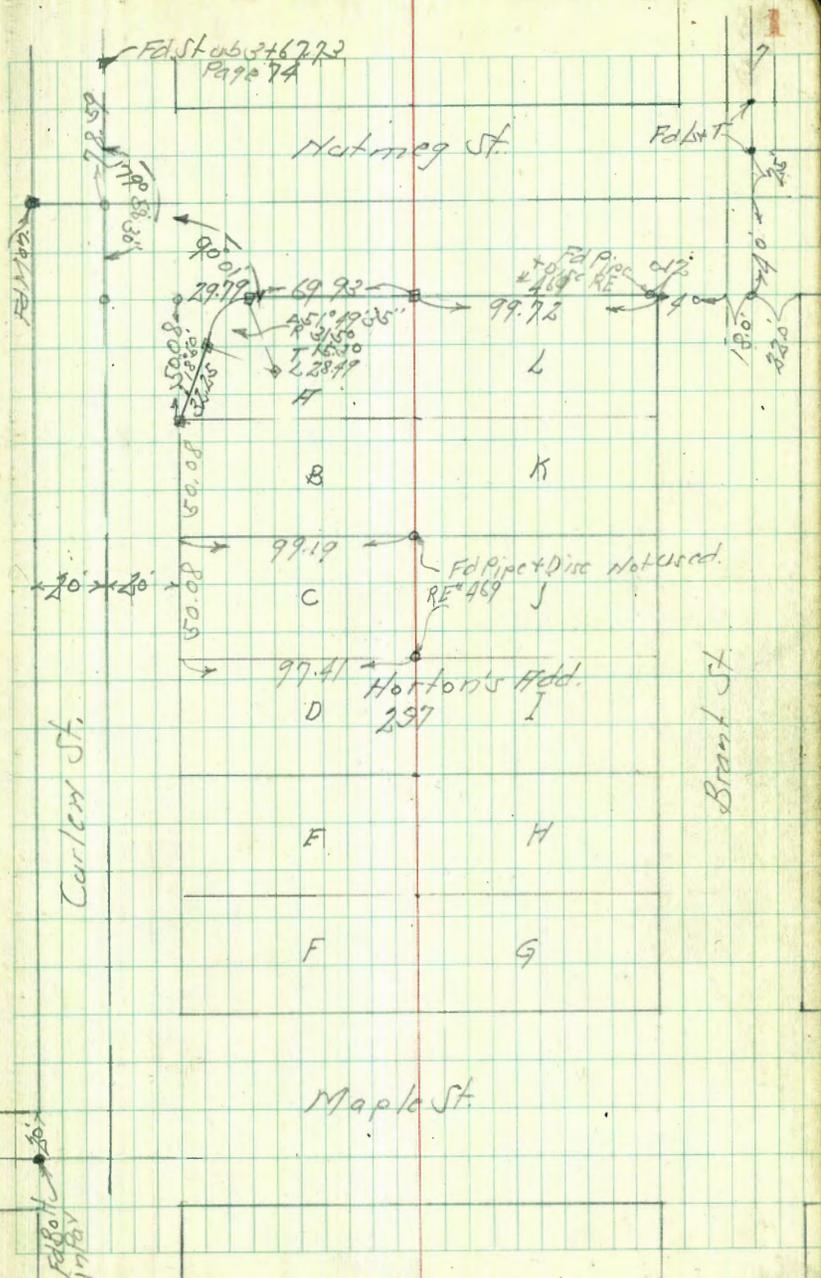 1
Fd. Stub 3+67.73
Page 74
7
Nutmeg St.
Fd L+T
78.50
25'
Fd Mon.
90° 01'
29.79
69.93
Fd Pipe
+ Disc RE
# 469
99.72
4
40'
18.0'
22.0'
Δ 51° 49' 35"
R 31.50
T 15.30
L 28.49
50.08
32.25
A
L
B
K
50.08
99.19
Fd Pipe + Disc Not Used.
RE # 469
20'
20'
50.08
C
J
97.41
Horton's Add.
D
297
I
Curlew St.
Brant St.
E
H
F
G
Maple St.
20'
Fd Bolt
in Pav